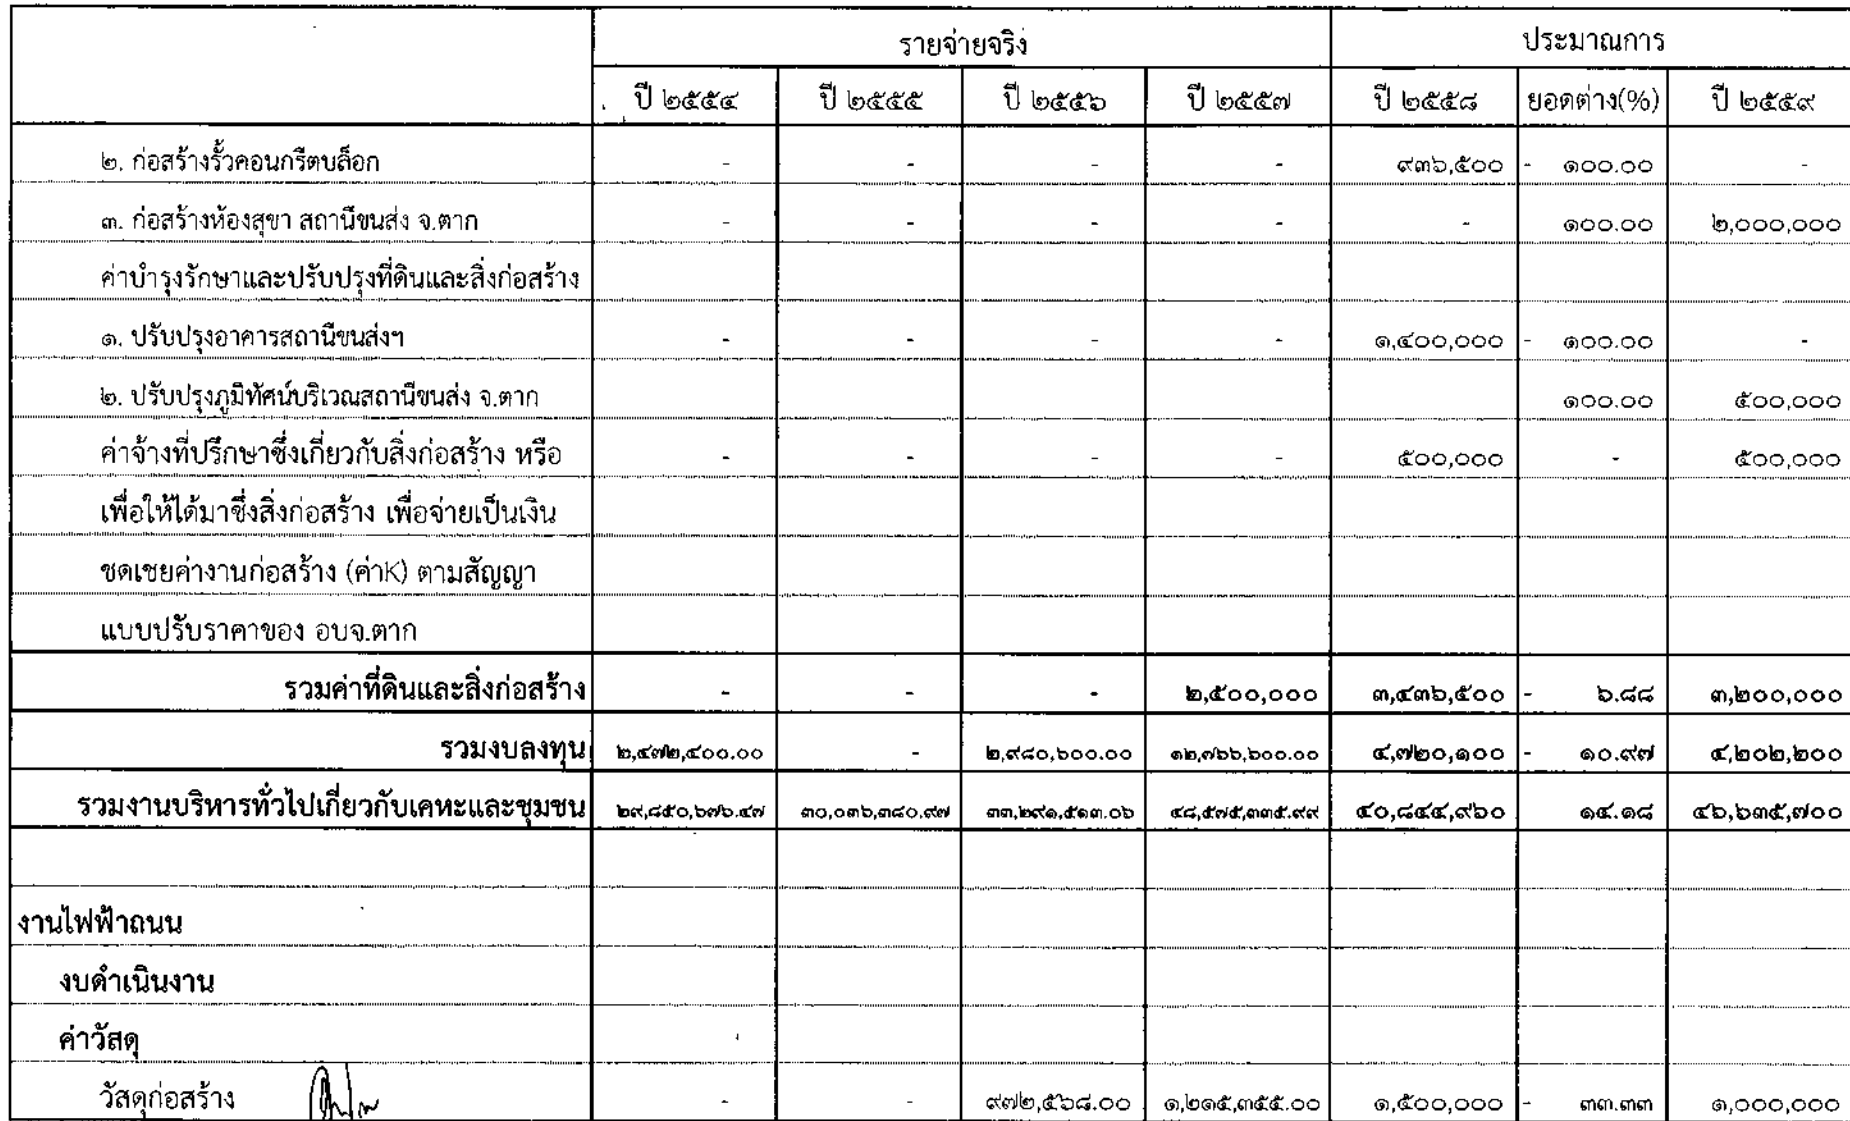 รายจ่ายจริง ประมาณการ
ปี ๒๕๕๔ ปี ๒๕๕๕ ปี ๒๕๕๖ ปี ๒๕๕๗ ปี ๒๕๕๘ ยอดต่าง(%) ปี ๒๕๕๙
๒. ก่อสร้างรั้วคอนกรีตบล็อก - - - - ๙๓๖,๕๐๐ - ๑๐๐.๐๐ -
๓. ก่อสร้างห้องสุขา สถานีขนส่ง จ.ตาก - - - - - ๑๐๐.๐๐ ๒,๐๐๐,๐๐๐
ค่าบำรุงรักษาและปรับปรุงที่ดินและสิ่งก่อสร้าง
๑. ปรับปรุงอาคารสถานีขนส่งฯ - - - - ๑,๔๐๐,๐๐๐ - ๑๐๐.๐๐ -
๒. ปรับปรุงภูมิทัศน์บริเวณสถานีขนส่ง จ.ตาก ๑๐๐.๐๐ ๕๐๐,๐๐๐
ค่าจ้างที่ปรึกษาซึ่งเกี่ยวกับสิ่งก่อสร้าง หรือ - - - - ๕๐๐,๐๐๐ - ๕๐๐,๐๐๐
เพื่อให้ได้มาซึ่งสิ่งก่อสร้าง เพื่อจ่ายเป็นเงิน
ชดเชยค่างานก่อสร้าง (ค่าK) ตามสัญญา
แบบปรับราคาของ อบจ.ตาก
รวมค่าที่ดินและสิ่งก่อสร้าง - - - ๒,๕๐๐,๐๐๐ ๓,๔๓๖,๕๐๐ - ๖.๘๘ ๓,๒๐๐,๐๐๐
รวมงบลงทุน ๒,๔๗๒,๔๐๐.๐๐ - ๒,๙๘๐,๖๐๐.๐๐ ๑๒,๗๖๖,๖๐๐.๐๐ ๔,๗๒๐,๑๐๐ - ๑๐.๙๗ ๔,๒๐๒,๒๐๐
รวมงานบริหารทั่วไปเกี่ยวกับเคหะและชุมชน ๒๙,๘๕๐,๖๗๖.๔๗ ๓๐,๐๓๖,๓๘๐.๙๗ ๓๓,๒๙๑,๕๑๓.๐๖ ๔๘,๕๗๕,๓๓๕.๙๙ ๔๐,๘๔๔,๙๖๐ ๑๔.๑๘ ๔๖,๖๓๕,๗๐๐
งานไฟฟ้าถนน
งบดำเนินงาน
ค่าวัสดุ
วัสดุก่อสร้าง - - ๙๗๒,๕๖๘.๐๐ ๑,๒๑๕,๓๕๕.๐๐ ๑,๕๐๐,๐๐๐ - ๓๓.๓๓ ๑,๐๐๐,๐๐๐